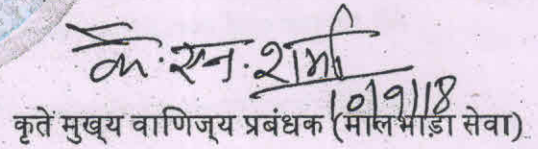 के. एन. शर्मा
10/9/18
कृते मुख्य वाणिज्य प्रबंधक (मालभाड़ा सेवा)